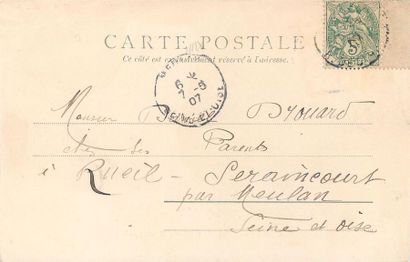 CARTE POSTALE
Ce côté est exclusivement réservé à l'adresse.
5
6
7 -5
07
Monsieur B Drouard
chez ses Parents
à Rueil - Seraincourt
par Meulan
Seine et Oise